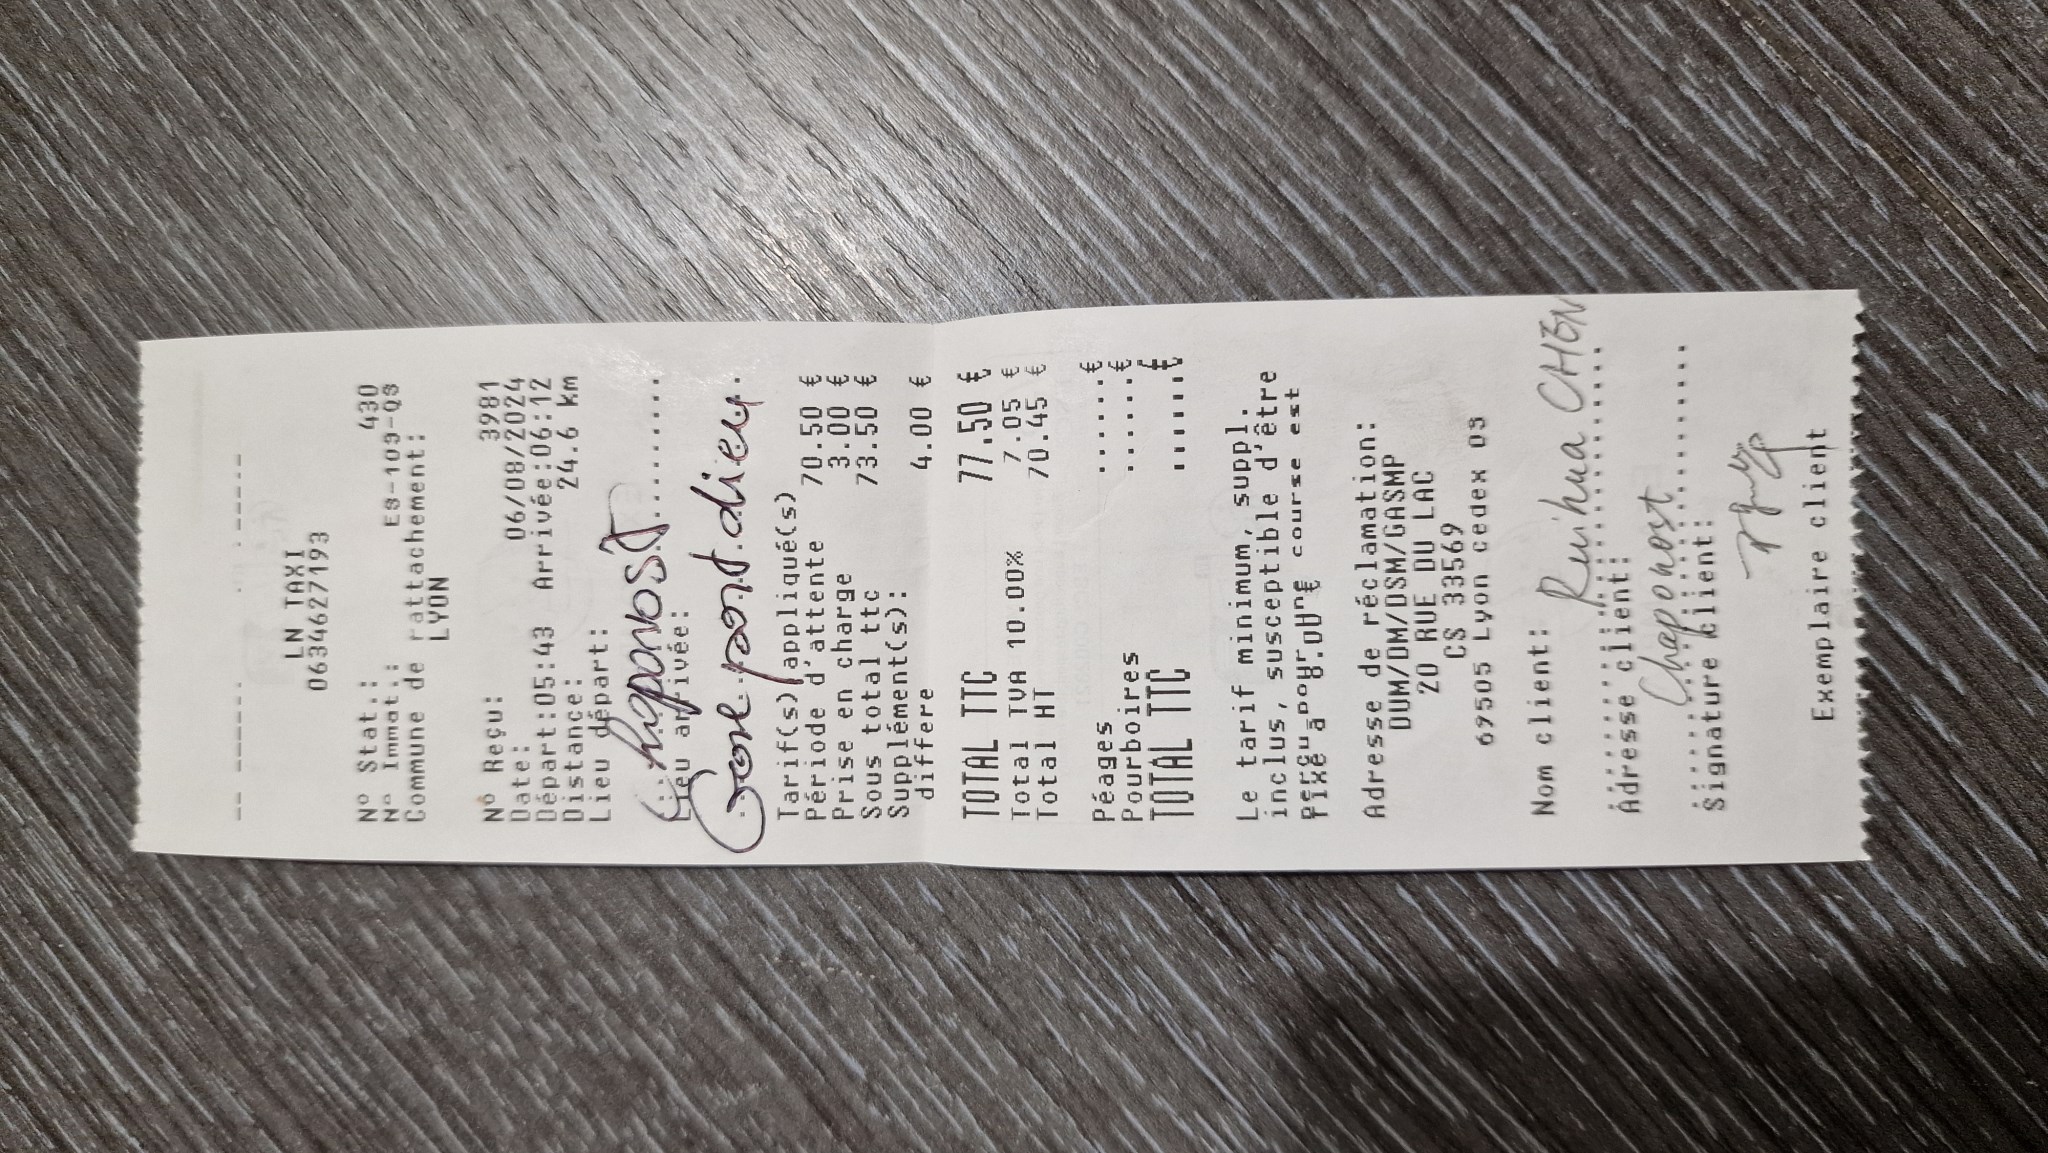 LN TAXI
0634627193
N° Stat.: 430
N° Immat.: ES-103-QS
Commune de rattachement:
LYON
N° Reçu: 3981
Date: 06/08/2024
Départ:05:43 Arrivée:06:12
Distance: 24.6 km
Lieu départ:
Chaponost..........
Lieu arrivée:
Gare part dieu.
Tarif(s) appliqué(s)
Période d'attente 70.50 €
Prise en charge 3.00 €
Sous total ttc 73.50 €
Supplément(s):
differe 4.00 €
TOTAL TTC 77.50 €
Total TVA 10.00% 7.05 €
Total HT 70.45 €
Péages ......€
Pourboires ......€
TOTAL TTC ......€
Le tarif minimum, suppl.
inclus, susceptible d'être
perçu pour une course est
fixé à 8.00 €
Adresse de réclamation:
DUM/DM/DSM/GASMP
20 RUE DU LAC
CS 33569
69505 Lyon cedex 03
Nom client:
Ruihua CHEN
Adresse client:
Chaponost
Signature client:
Exemplaire client